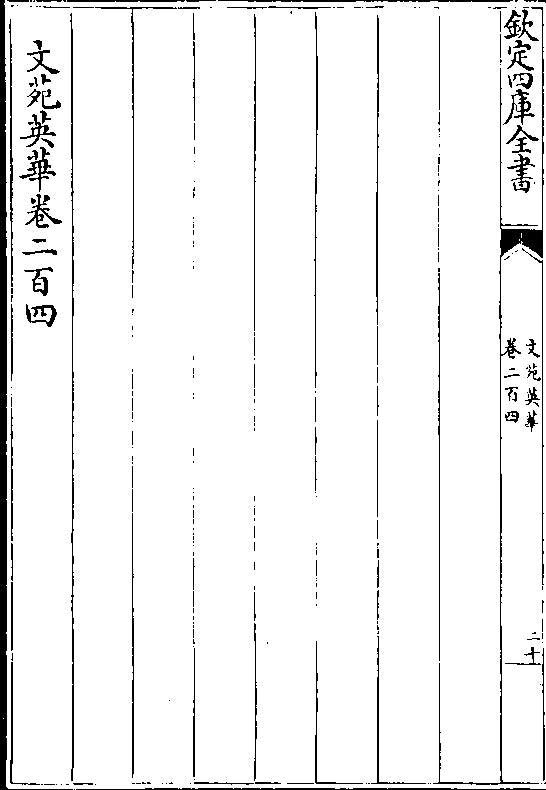 欽定四庫全書
文苑英華
卷二百四
二十
文苑英華卷二百四